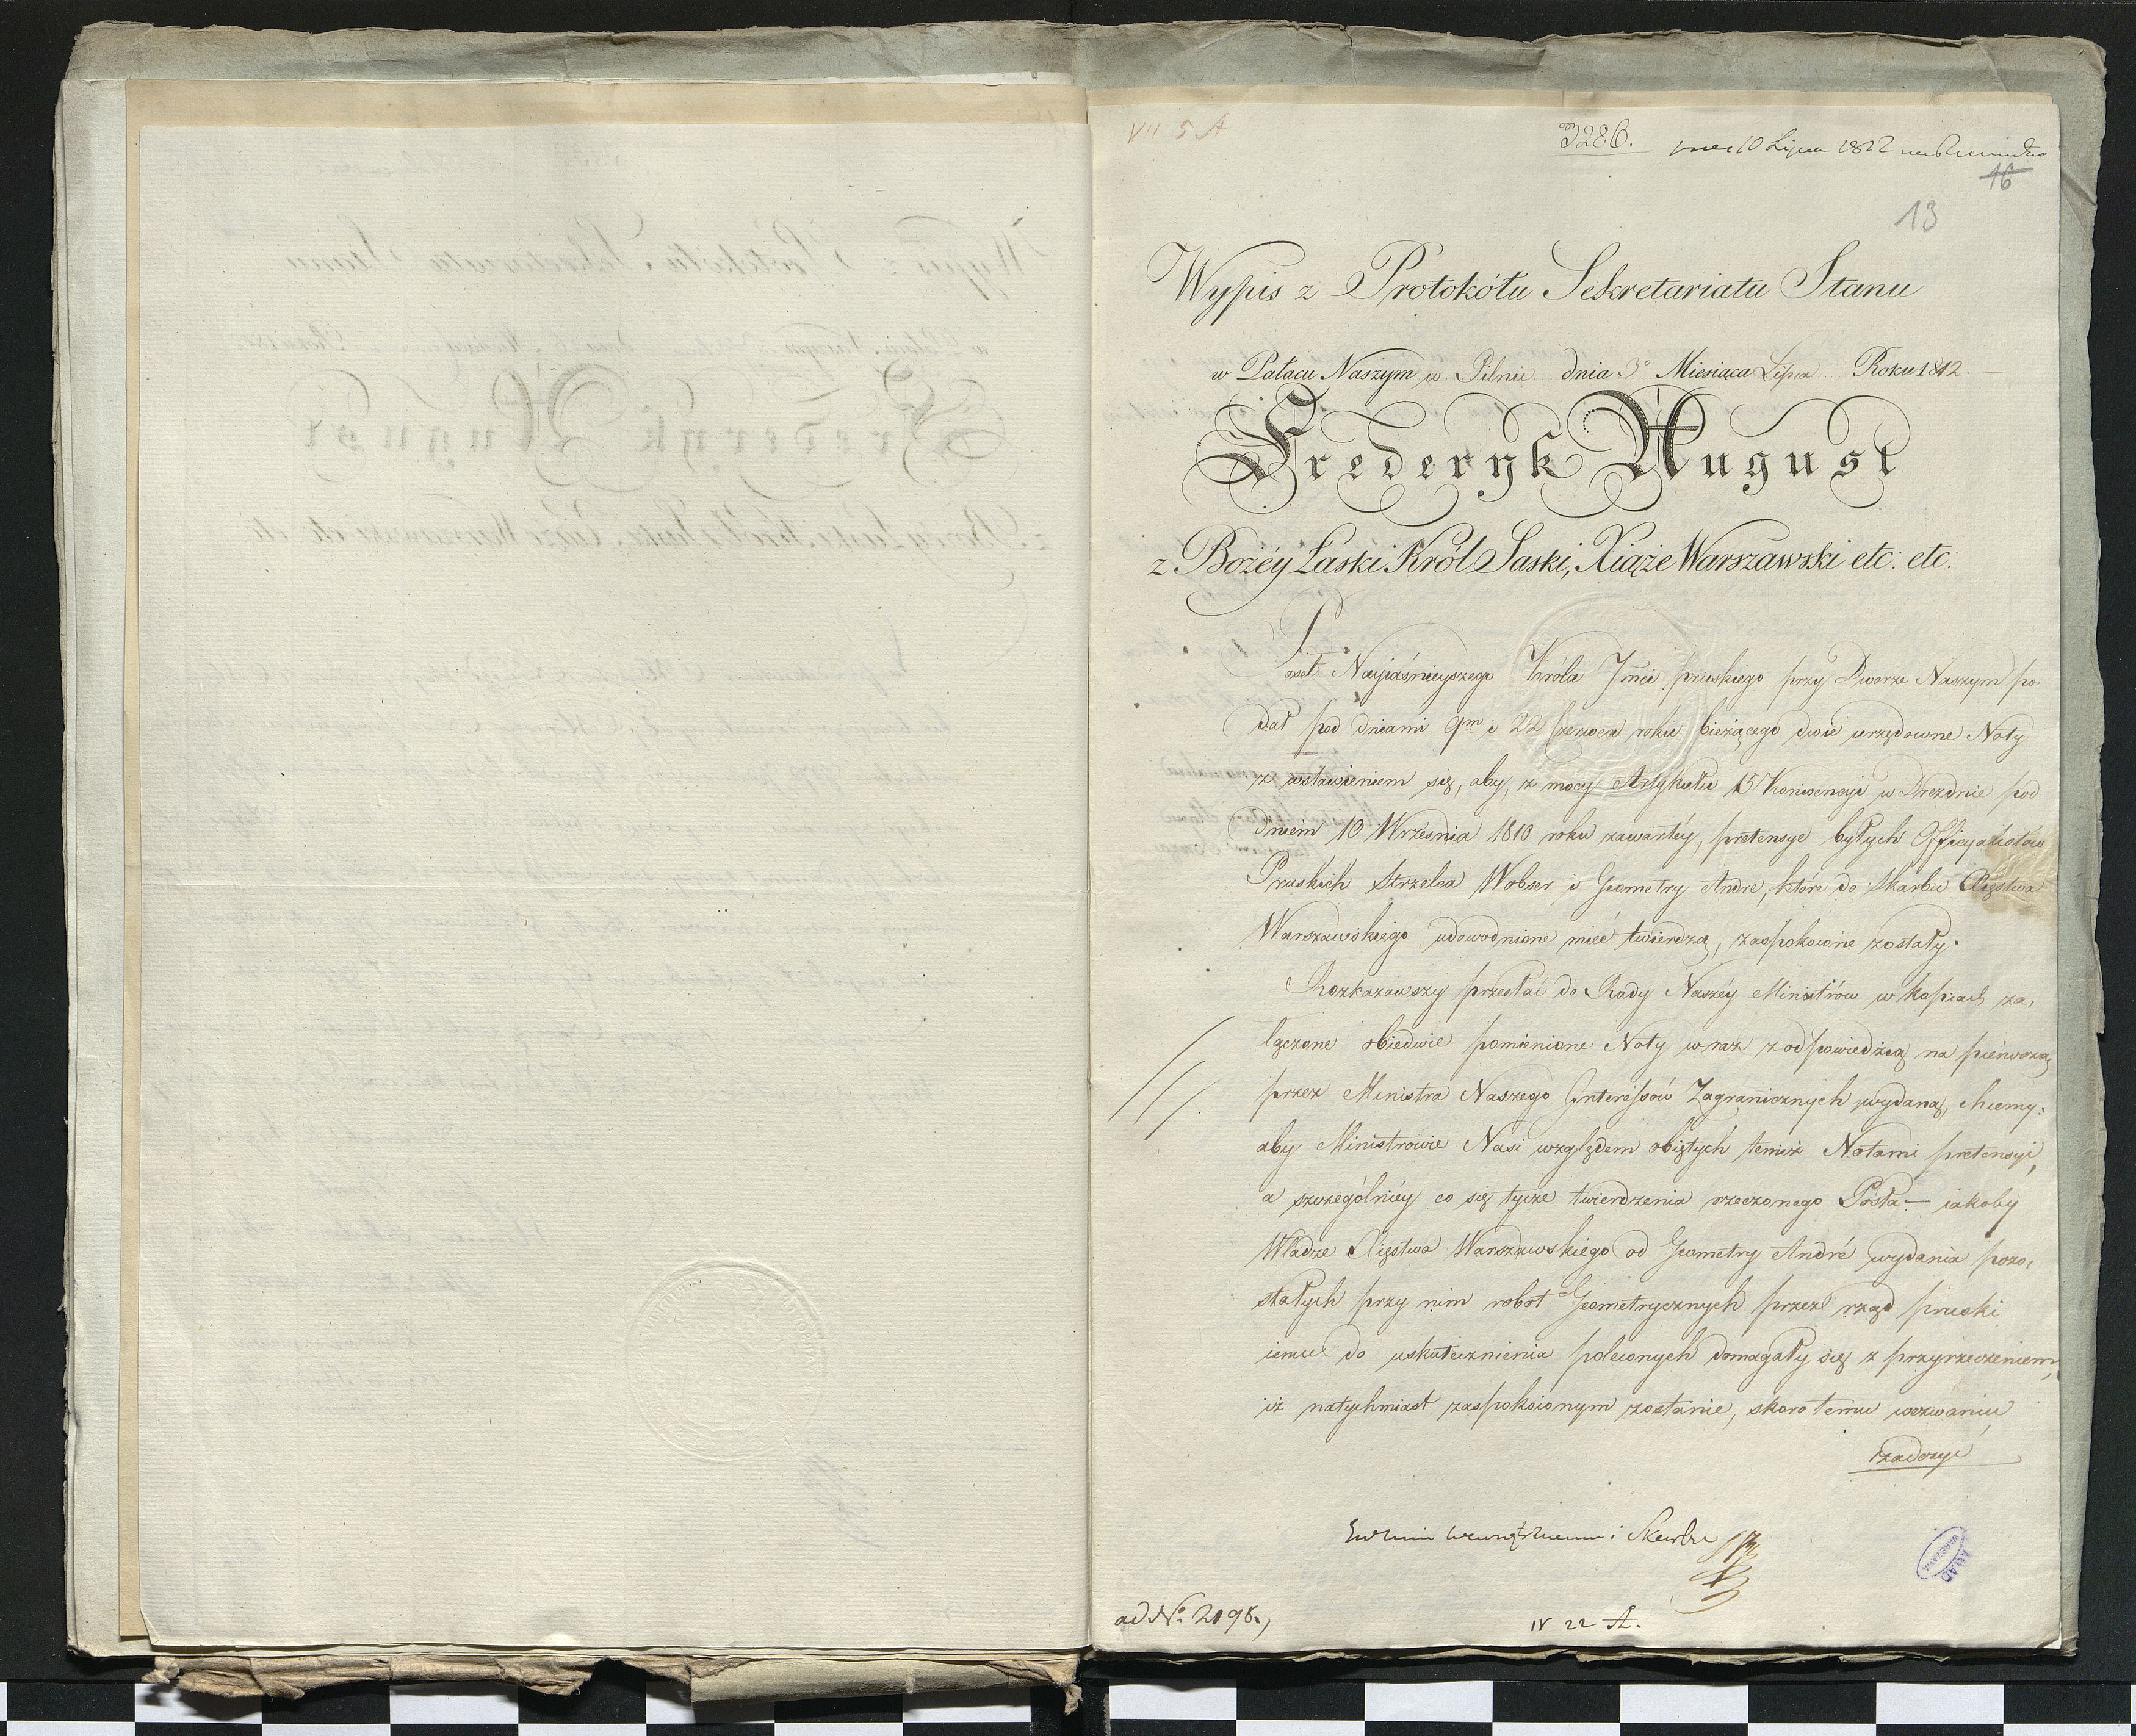 VII 5 A
3286. 10 Lipca 1812
16
13
Wypis z Protokółu Sekretariatu Stanu
w Pałacu Naszym w Pilnic dnia 3º Miesiąca Lipca Roku 1812
Frederyk August
z Bożéy Łaski Król Saski, Xiąże Warszawski etc: etc:
Poseł Nayjaśnieyszego Króla Jmci pruskiego przy Dworze Naszym po-
dał pod dniami 9m i 22 Czerwca roku bieżącego dwie urzędowne Noty
z wstawieniem się, aby, z mocy Artykułu 15 Konwencyi w Dreznie pod
dniem 10 Września 1810 roku zawartéy, pretensye byłych Officyalistów
Pruskich Strzelca Wobser i Geometry Andre, które do Skarbu Xięstwa
Warszawskiego udowodnione mieć twierdzą, zaspokoione zostały.
Rozkazawszy przesłać do Rady Naszéy Ministrów w kopiach za-
łączone obiedwie pomienione Noty wraz z odpowiedzią na pierwszą
przez Ministra Naszego Interessów Zagranicznych wydaną, chcemy:
aby Ministrowie Nasi względem obiętych temiż Notami pretensyi,
a szczególniéy co się tycze twierdzenia rzeczonego Posła – iakoby
Władze Xięstwa Warszawskiego od Geometry André wydania pozo-
stałych przy nim robot Geometrycznych przez rząd pruski
iemu do uskutecznienia poleconych domagały się z przyrzeczeniem,
iż natychmiast zaspokoionym zostanie, skoro temu wezwaniu
zadosyć
i Skarbu
ad Nº 2198.,
IV 22 A.
AGAD
WARSZAWA